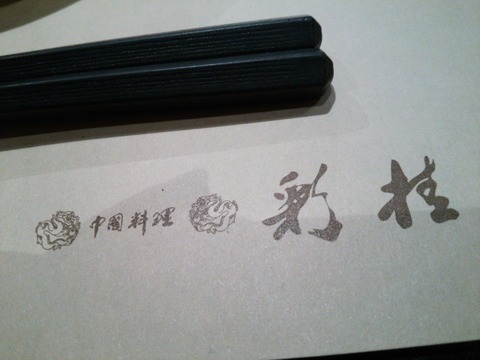 中国料理 彩桂